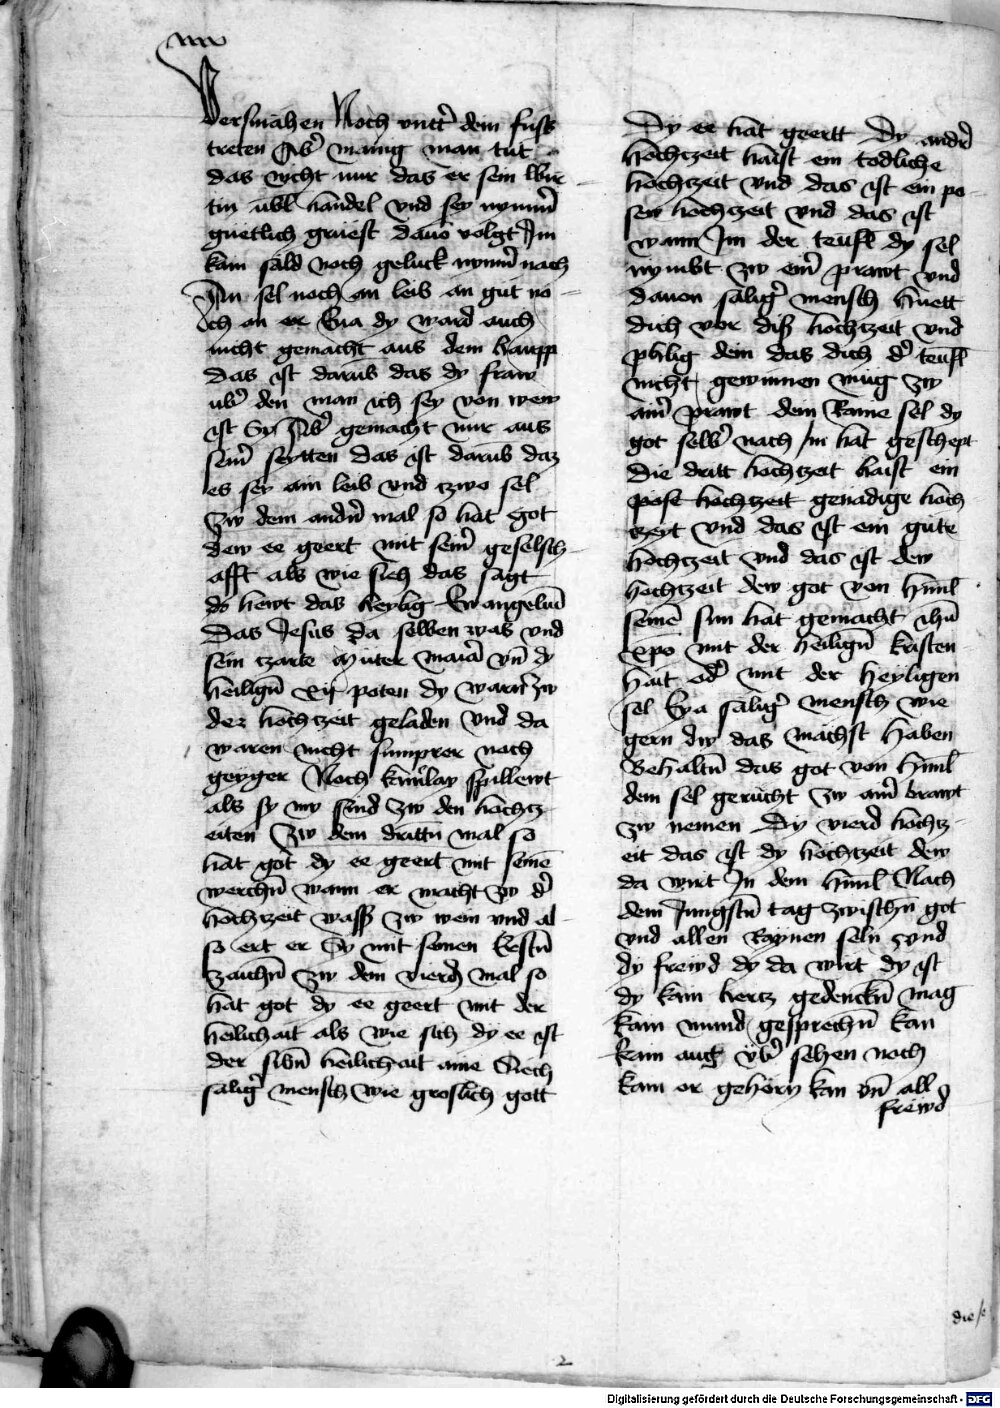 versmahen Noch vntt̄ dem fuss
treten Ab̄ mānig man tut
das nicht nur das er sein wir-
tin ubl handel vnd sey nym̄
guetlich gruest dauō volgt Jm
kain säld noch geluck nym̄ nach
An sel noch an leib an gut no-
ch an er Eua dy ward auch
nicht gemacht aus dem haupp
das ist darūb das dy fraw
ub̄ den man ich sey von wew
ist Sy Ab̄ gemacht nur aus
sein̄ seytten das ist darūb daz
es sey ain leib vnd czwo sel
Zw dem andn̄ mal so hat got
dew ee geert mit sein̄ geselsch-
afft als wie sich das sagt
do hewt das heylig Ewangeliū
Das Jesus da selben was vnd
sein czarte Müter maria vn̄ dy
heilign̄ xij poten dy warn̄ zw
der hochczeit geladen vnd da
waren nicht sumprer noch
geyger Noch spillewt
als sy nu sind zw den hochtz
eiten Zw dem drittn̄ mal so
hat got dy ee geert mit seinē
werchn̄ wann er macht zw d̄
hochczeit wass̄ zw wein vnd al-
so ert er Sy mit seinen Erstn̄
zaichn̄ Zw dem vierdn̄ mal so
hat got dy ee geert mit der
heilichait als wie sich dy ee ist
der sibn̄ heilichait aine Siech
saliḡ mensch wie groslich gott
Dy ee hat geertt Dy andr̄
hochczeit haist ein todliche
hochczeit vnd das ist ein po-
sew hochczeit vnd das ist
wann Jm der teufl dy sel
nymbt zw ein̄ prawt vnd
dauon saliḡ mensch huett
dich vor diß hochczeit vnd
phlig dein das dich d̄ teufl
nicht gewinnen müg zw
ain̄ prawt dein Raine sel dy
got selb̄ nach im hat geschept
Die dritt hochczeit haist ein
pose hochczeit genadige hoch
czeyt vnd das ist ein gute
hochczeit vnd das ist dew
hochczeit dew got von himl
seinē sun hat gemacht ihū
xpo mit der heilign̄ kristen-
hait od̄ mit der heyligen
sel Eya saliḡ mensch wie
gern dw das machst haben
Behaltn̄ das got von himl
dein sel gerücht zw ain̄ brawt
zw nemen Dy vierd hochtz-
eit das ist dy hochczeit dew
da wirt Jn dem himl Nach
dem Jungstn̄ tag zwischn̄ got
vnd allen Raynen seln vnd
dy frewd dy da wirt dy ist
dy kain hertz gedenckn̄ mag
kain mund gesprechn̄ kan
kain aug vb̄ sehen noch
kain or gehorn kan vn̄ all
frewd
die
2
Digitalisierung gefördert durch die Deutsche Forschungsgemeinschaft - DFG